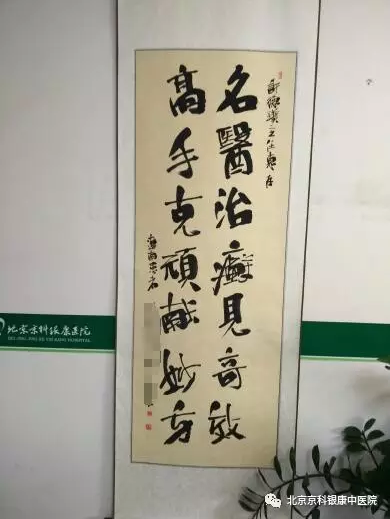 名醫治癬見奇效
高手克頑献妙方
北京京科银康医院
BEIJING JING KE YIN KANG HOSPITAL
北京京科银康中医院